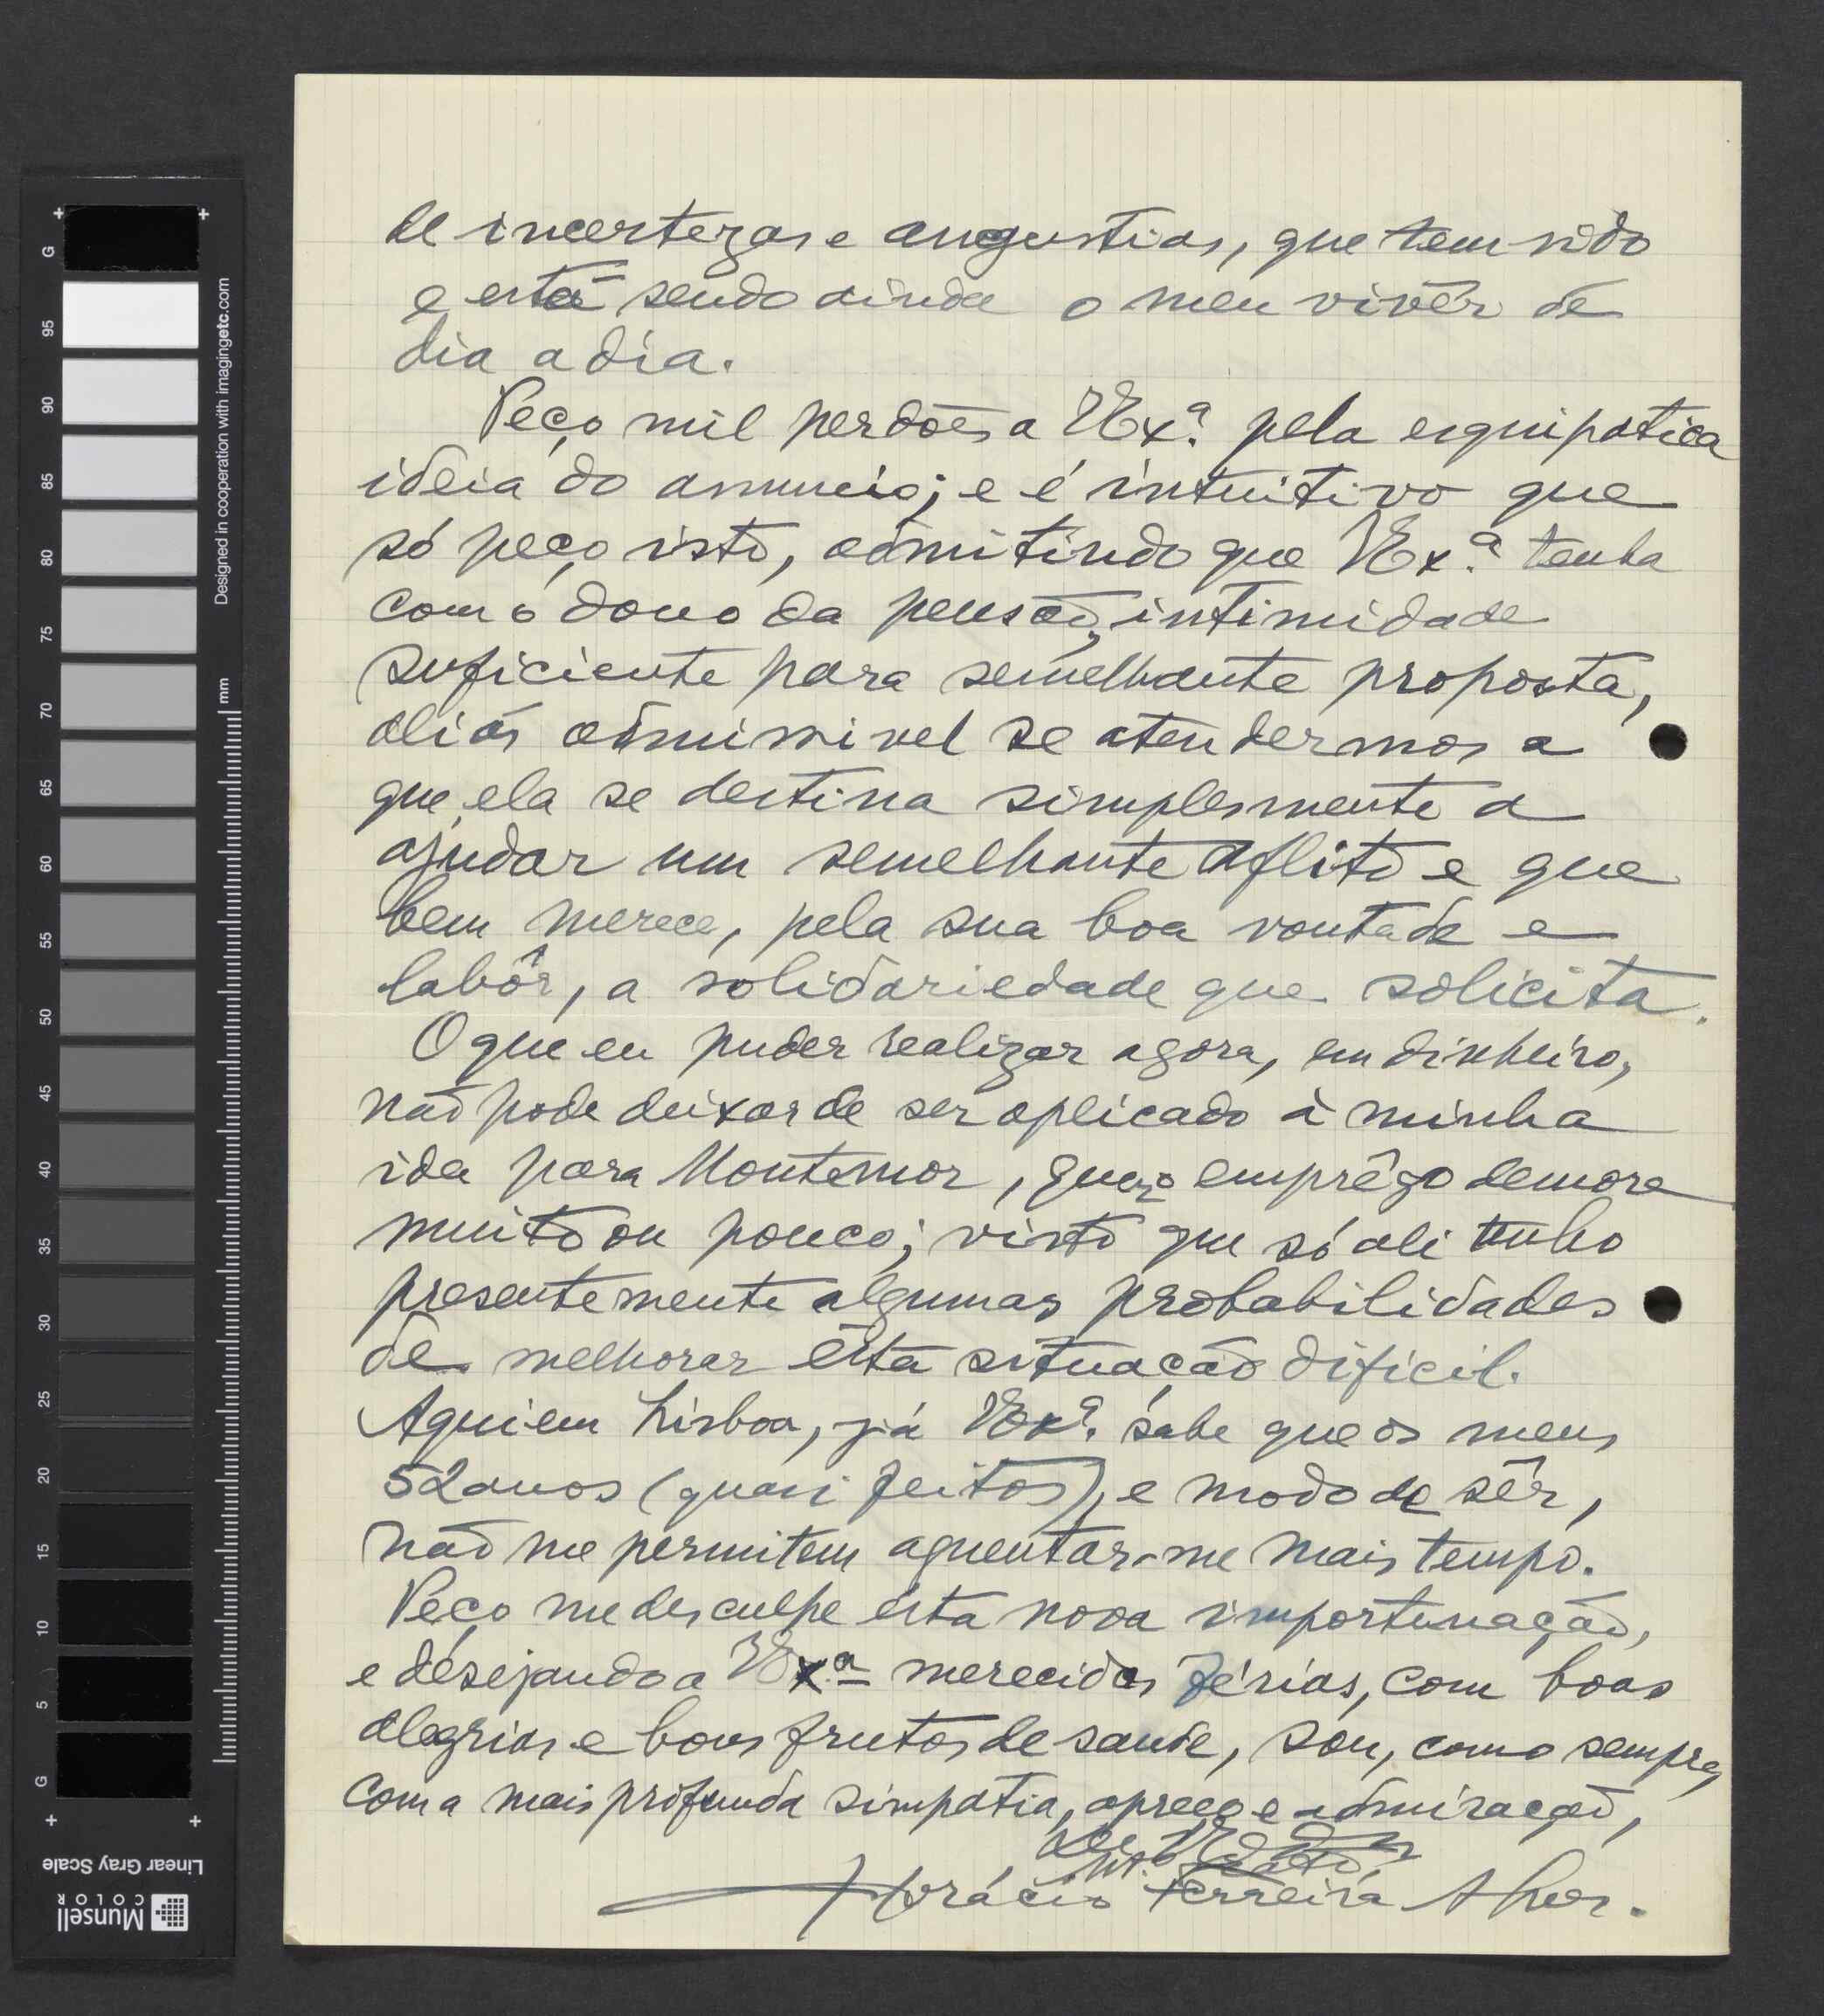 de incertezas e angustias, que tem sido
e está sendo ainda o meu vivêr de
dia a dia.
Peço mil perdões a V Ex.ª pela esquipatica
ideia do anuncio; e é intuitivo que
só peço isto, admitindo que V Ex.ª tenha
com o dono da pensão, intimidade
suficiente para semelhante proposta,
aliás admissivel se atendermos a
que ela se destina simplesmente a
ajudar um semelhante aflito e que
bem merece, pela sua boa vontade e
labôr, a solidariedade que solicita.
O que eu puder realizar agora, em dinheiro,
não pode deixar de ser aplicado à minha
ida para Montemor, quer o emprêgo demore
muito ou pouco; visto que só ali tenho
presentemente algumas probabilidades
de melhorar ésta situação dificil.
Aqui em Lisboa, já V Ex.ª sabe que os meus
52 anos (quasi feitos), e modo de sêr,
não me permitem aguentar-me mais tempo.
Peço me desculpe ésta nova importunação,
e desejando a V Ex.ª merecidas férias, com boas
alegrias e bons frutos de saude, sou, como sempre,
com a mais profunda simpatia, apreço e admiração,
de V Ex.ª
Horácio Ferreira Alves.
G 95 90 85 80 75 70 65 60 55 50 45 40 35 30 25 20 15 10 5 G
mm
Designed in cooperation with imagingetc.com
Linear Gray Scale
Munsell
COLOR